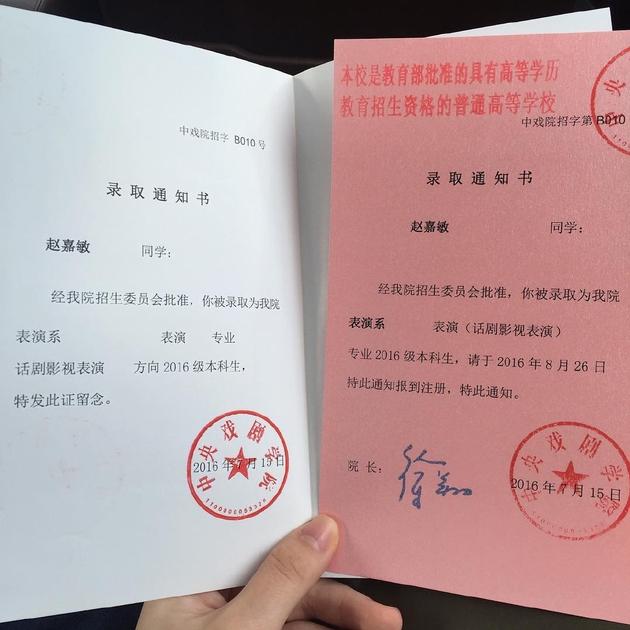 中戏院招字 B010 号
录取通知书
赵嘉敏 同学：
经我院招生委员会批准，你被录取为我院
表演系 表演 专业
话剧影视表演 方向 2016 级本科生，
特发此证留念。
中央戏剧学院
2016 年 7 月 15 日
本校是教育部批准的具有高等学历
教育招生资格的普通高等学校
中戏院招字第 B010
录取通知书
赵嘉敏 同学：
经我院招生委员会批准，你被录取为我院
表演系 表演（话剧影视表演）
专业 2016 级本科生，请于 2016 年 8 月 26 日
持此通知报到注册，特此通知。
院 长：
中央戏剧学院
2016 年 7 月 15 日